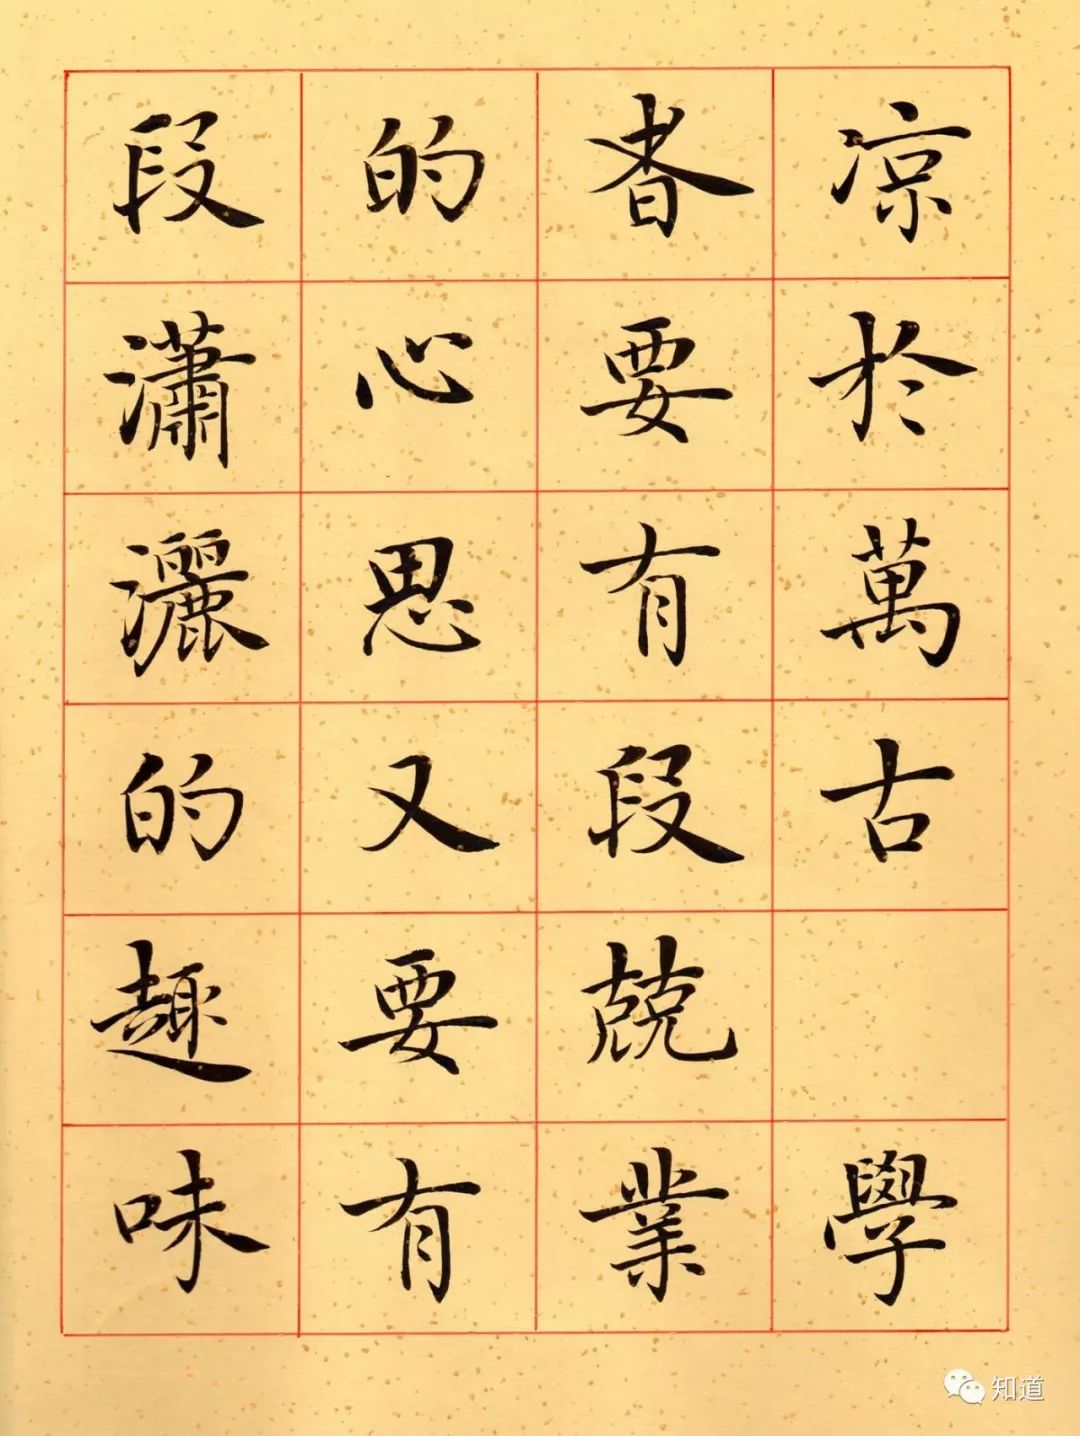 凉於萬古 學
者要有段兢業
的心思又要有
段瀟灑的趣味
知道